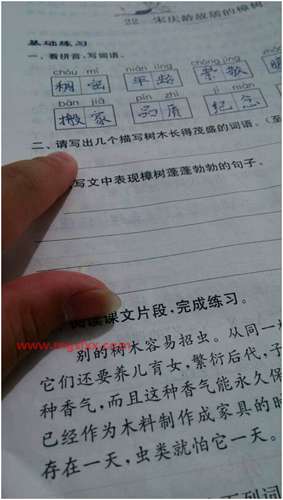 22 宋庆龄故居的樟树
基础练习
一、看拼音,写词语。
chóu mì nián líng chóng jìng
稠密 年龄 崇敬
bān jiā pǐn zhì jì niàn
搬家 品质 纪念
二、请写出几个描写树木长得茂盛的词语。(至
写文中表现樟树蓬蓬勃勃的句子。
阅读课文片段,完成练习。
别的树木容易招虫。从同一
它们还要养儿育女,繁衍后代,子
种香气,而且这种香气能永久保
已经作为木料制作成家具的时
存在一天,虫类就怕它一天。